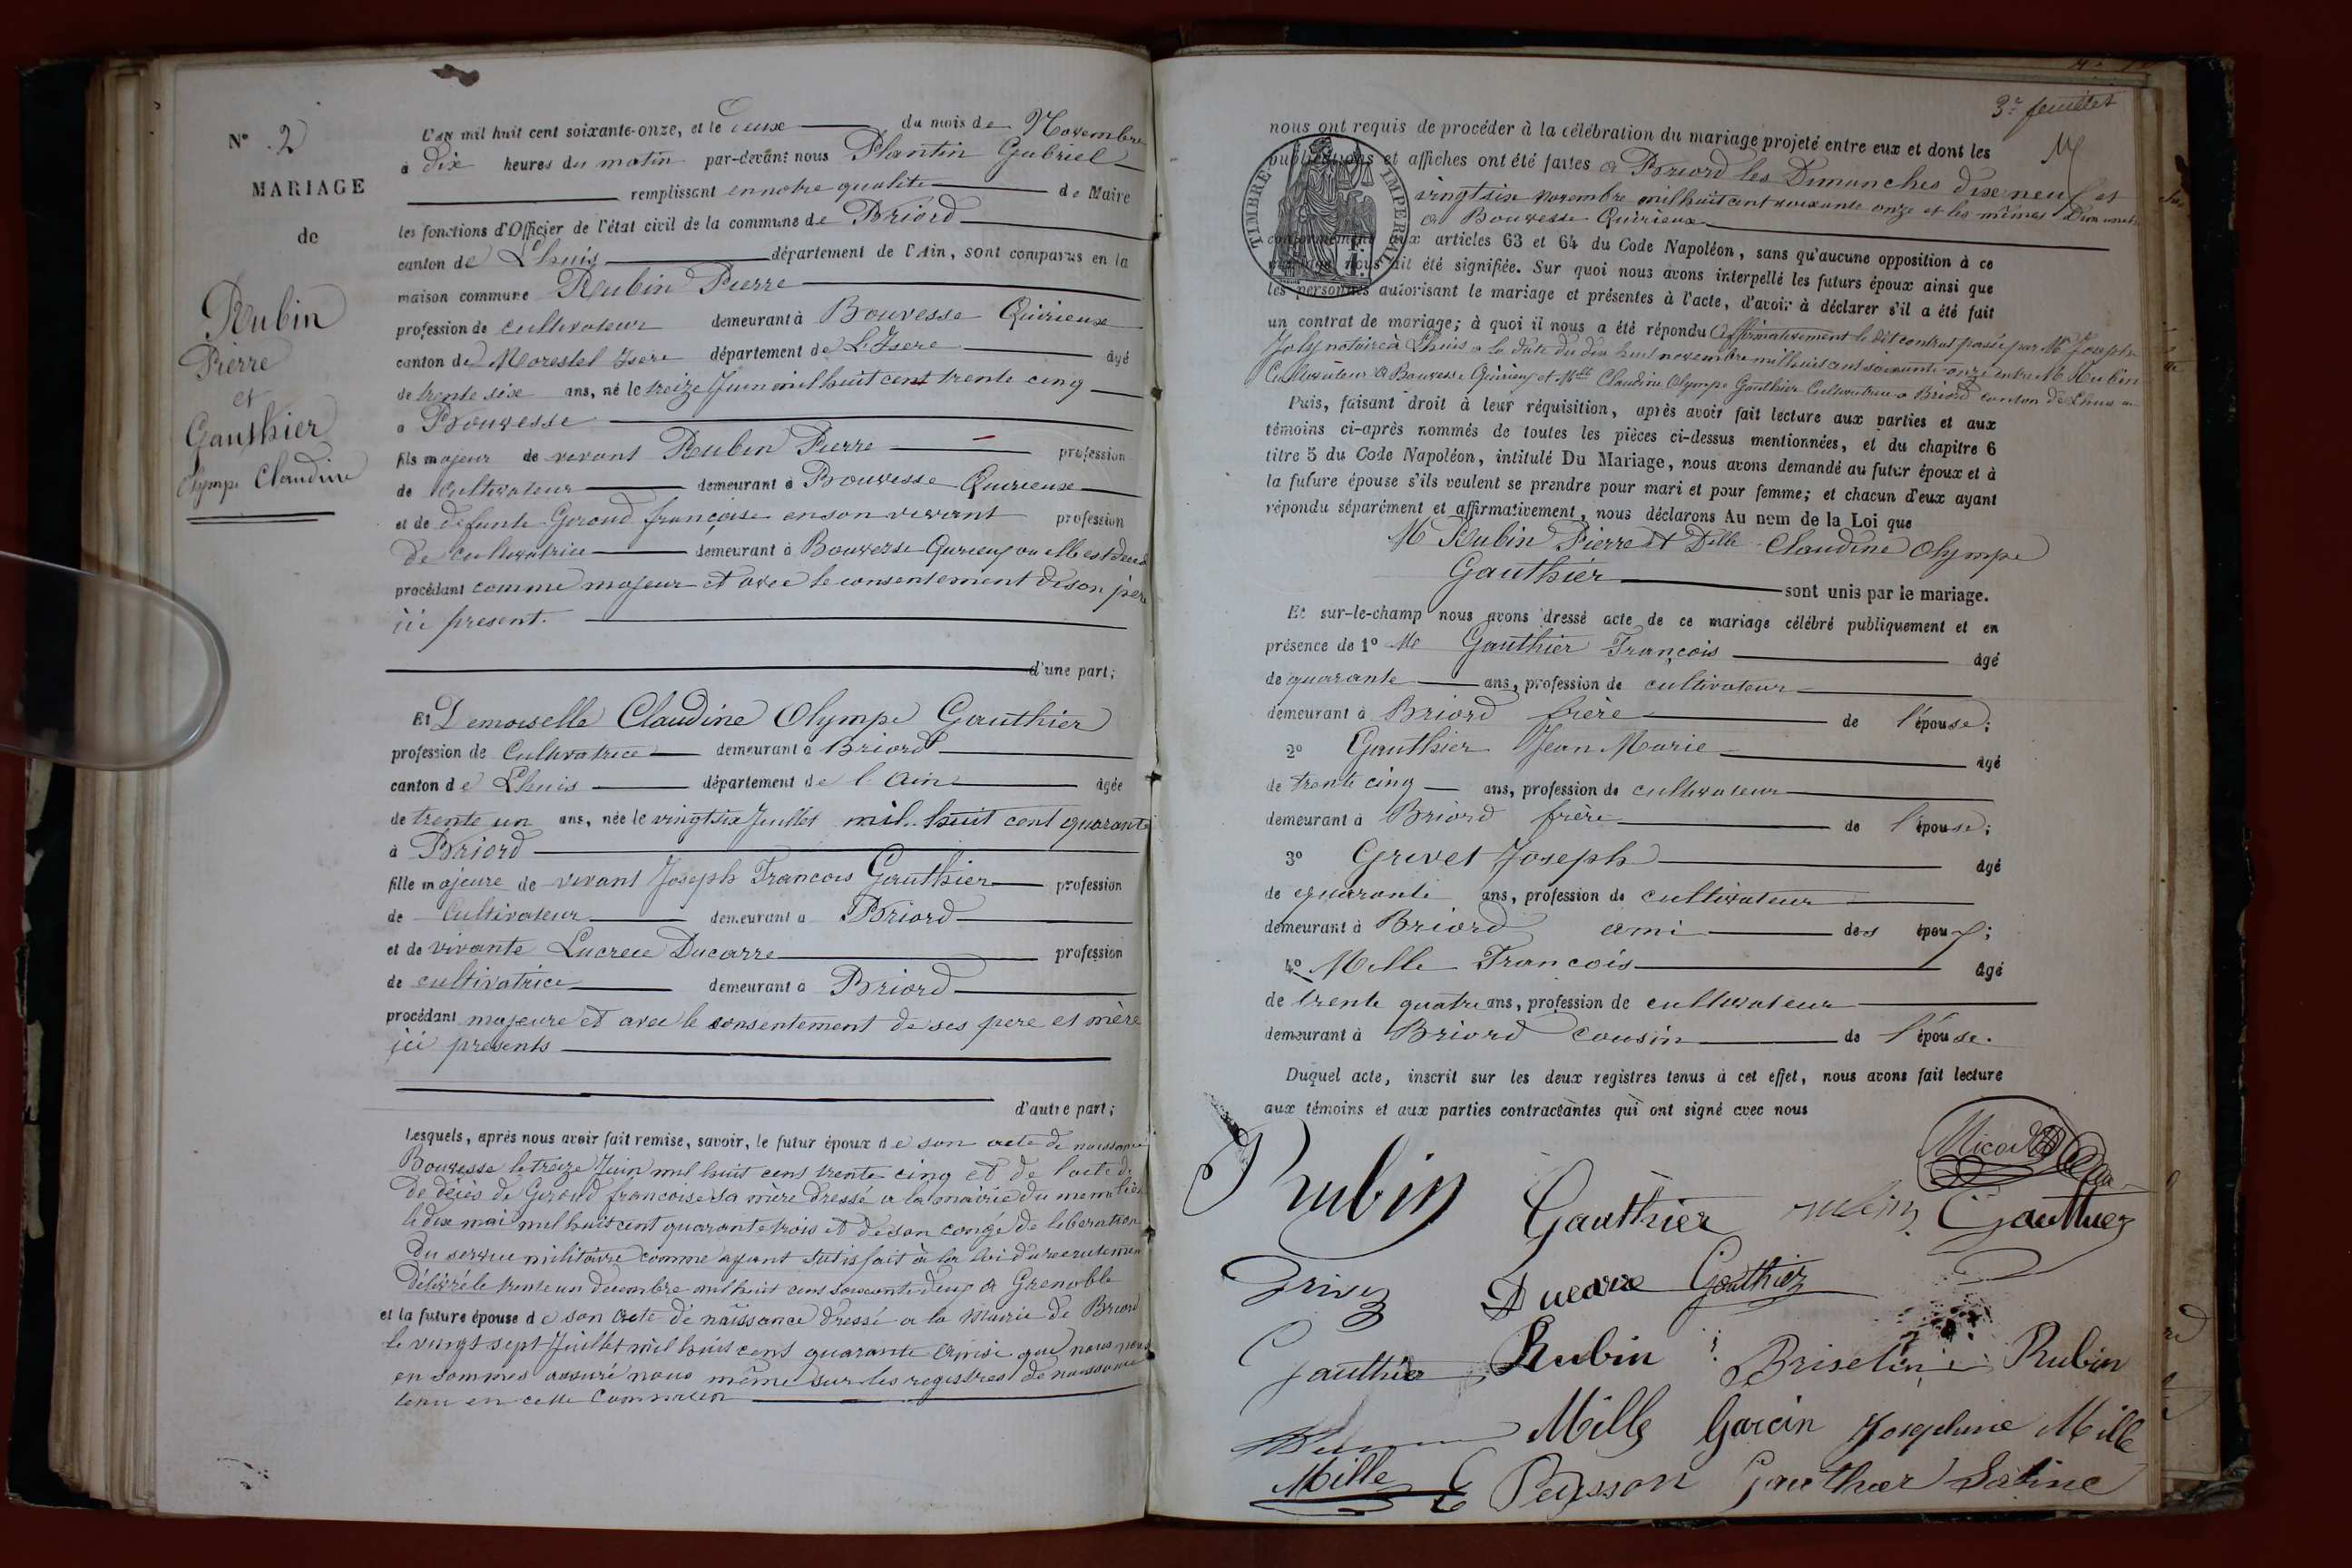 N° 2
MARIAGE
de
Rubin
Pierre
et
Gauthier
Olympe Claudine
L'an mil huit cent soixante-onze, et le Deux du mois de Novembre
à dix heures du matin par-devant nous Plantin Gabriel
remplissant en notre qualité de Maire
les fonctions d'Officier de l'état civil de la commune de Briord
canton de Lhuis département de l'Ain, sont comparus en la
maison commune Rubin Pierre
profession de cultivateur demeurant à Bouvesse Quirieux
canton de Morestel Isère département de L'Isere âgé
de trente six ans, né le treize Juin mil huit cent trente cinq
a Bouvesse
fils majeur de vivant Rubin Pierre profession
de cultivateur demeurant à Bouvesse Quirieux
et de defunte Geroud françoise en son vivant profession
De cultivatrice demeurant à Bouvesse Quirieux ou elle est
procédant comme majeur et avec le consentement de son père
ici présent.
d'une part;
Et Demoiselle Claudine Olympe Gauthier
profession de Cultivatrice demeurant à Briord
canton de Lhuis département de l'Ain agée
de trente un ans, née le vingt six Juillet mil huit cent quarante
à Briord
fille majeure de vivant Joseph Francois Gauthier profession
de Cultivateur demeurant a Briord
et de vivante Lucrece Ducarre profession
de cultivatrice demeurant à Briord
procédant majeure et avec le consentement de ses pere et mère
ici présents
d'autre part;
Lesquels, après nous avoir fait remise, savoir, le futur époux de son acte de naissance
Bouvesse le treize Juin mil huit cent trente cinq et de l'acte de
De décès de Geroud francoise sa mère dressé a la mairie du meme lieu
le dix mai mil huit cent quarante trois et de son congé de liberation
du service militaire comme ayant satisfait à la loi du recrutement
Délivré le trente un décembre mil huit cent soixante deux a Grenoble
et la future épouse de son acte de naissance dressé a la Mairie de Briord
le vingt sept Juillet mil huit cent quarante ainsi que nous nous
en sommes assuré nous même sur les registres de naissance
tenu en cette Commune
3e feuillet
nous ont requis de procéder à la célébration du mariage projeté entre eux et dont les
publications et affiches ont été faites a Briord les Dimanches dix neuf et
vingt six novembre mil huit cent soixante onze et les mêmes Dimanches
a Bouvesse Quirieux
TIMBRE IMPERIAL
conformément aux articles 63 et 64 du Code Napoléon, sans qu'aucune opposition à ce
mariage nous ait été signifiée. Sur quoi nous avons interpellé les futurs époux ainsi que
les personnes autorisant le mariage et présentes à l'acte, d'avoir à déclarer s'il a été fait
un contrat de mariage; à quoi il nous a été répondu Affirmativement le dit contrat passé par Me Joseph
Joly notaire à Lhuis a la date du dix huit novembre mil huit cent soixante onze entre M Rubin
Cultivateur a Bouvesse Quirieux et Mlle Claudine Olympe Gauthier Cultivatrice a Briord canton de Lhuis
Puis, faisant droit à leur réquisition, après avoir fait lecture aux parties et aux
témoins ci-après nommés de toutes les pièces ci-dessus mentionnées, et du chapitre 6
titre 5 du Code Napoléon, intitulé Du Mariage, nous avons demandé au futur époux et à
la future épouse s'ils veulent se prendre pour mari et pour femme; et chacun d'eux ayant
répondu séparément et affirmativement, nous déclarons Au nom de la Loi que
M Rubin Pierre et Delle Claudine Olympe
Gauthier sont unis par le mariage.
Et sur-le-champ nous avons dressé acte de ce mariage célébré publiquement et en
présence de 1° Me Gauthier François âgé
de quarante ans, profession de cultivateur
demeurant à Briord frère de l'épouse;
2° Gauthier Jean Marie âgé
de trente cinq ans, profession de cultivateur
demeurant à Briord frère de l'épouse;
3° Grivet Joseph âgé
de quarante ans, profession de cultivateur
demeurant à Briord ami des époux;
4° Mille Francois âgé
de trente quatre ans, profession de cultivateur
demeurant à Briord cousin de l'épouse.
Duquel acte, inscrit sur les deux registres tenus à cet effet, nous avons fait lecture
aux témoins et aux parties contractantes qui ont signé avec nous
Rubin Gauthier rubin Gauthier
Ducarre Gauthier
Gauthier Rubin Rubin
Mille Garcin Josephine Mille
Mille Gauthier Sabine